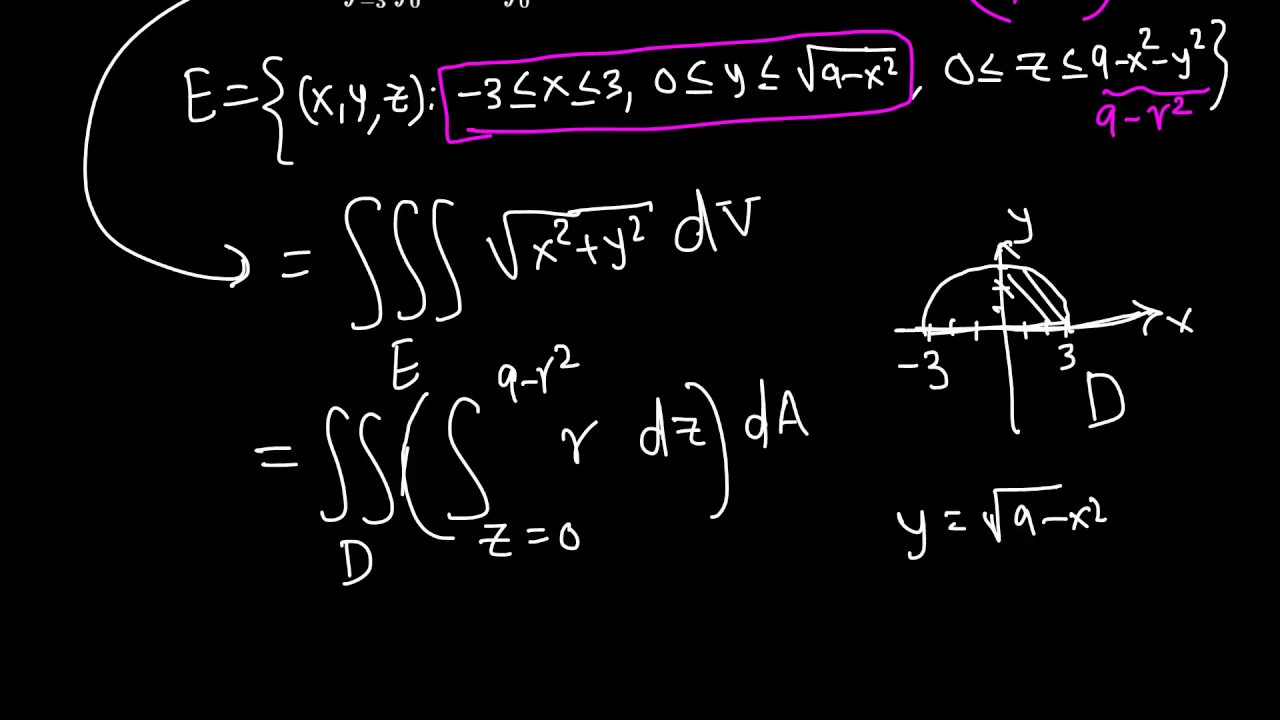 E={(x,y,z): -3≤x≤3, 0≤y≤√(9-x²), 0≤z≤9-x²-y²}
9-r²
= ∭_E √(x²+y²) dV
= ∬_D (∫_{z=0}^{9-r²} r dz) dA
y
x
-3 3
D
y = √(9-x²)